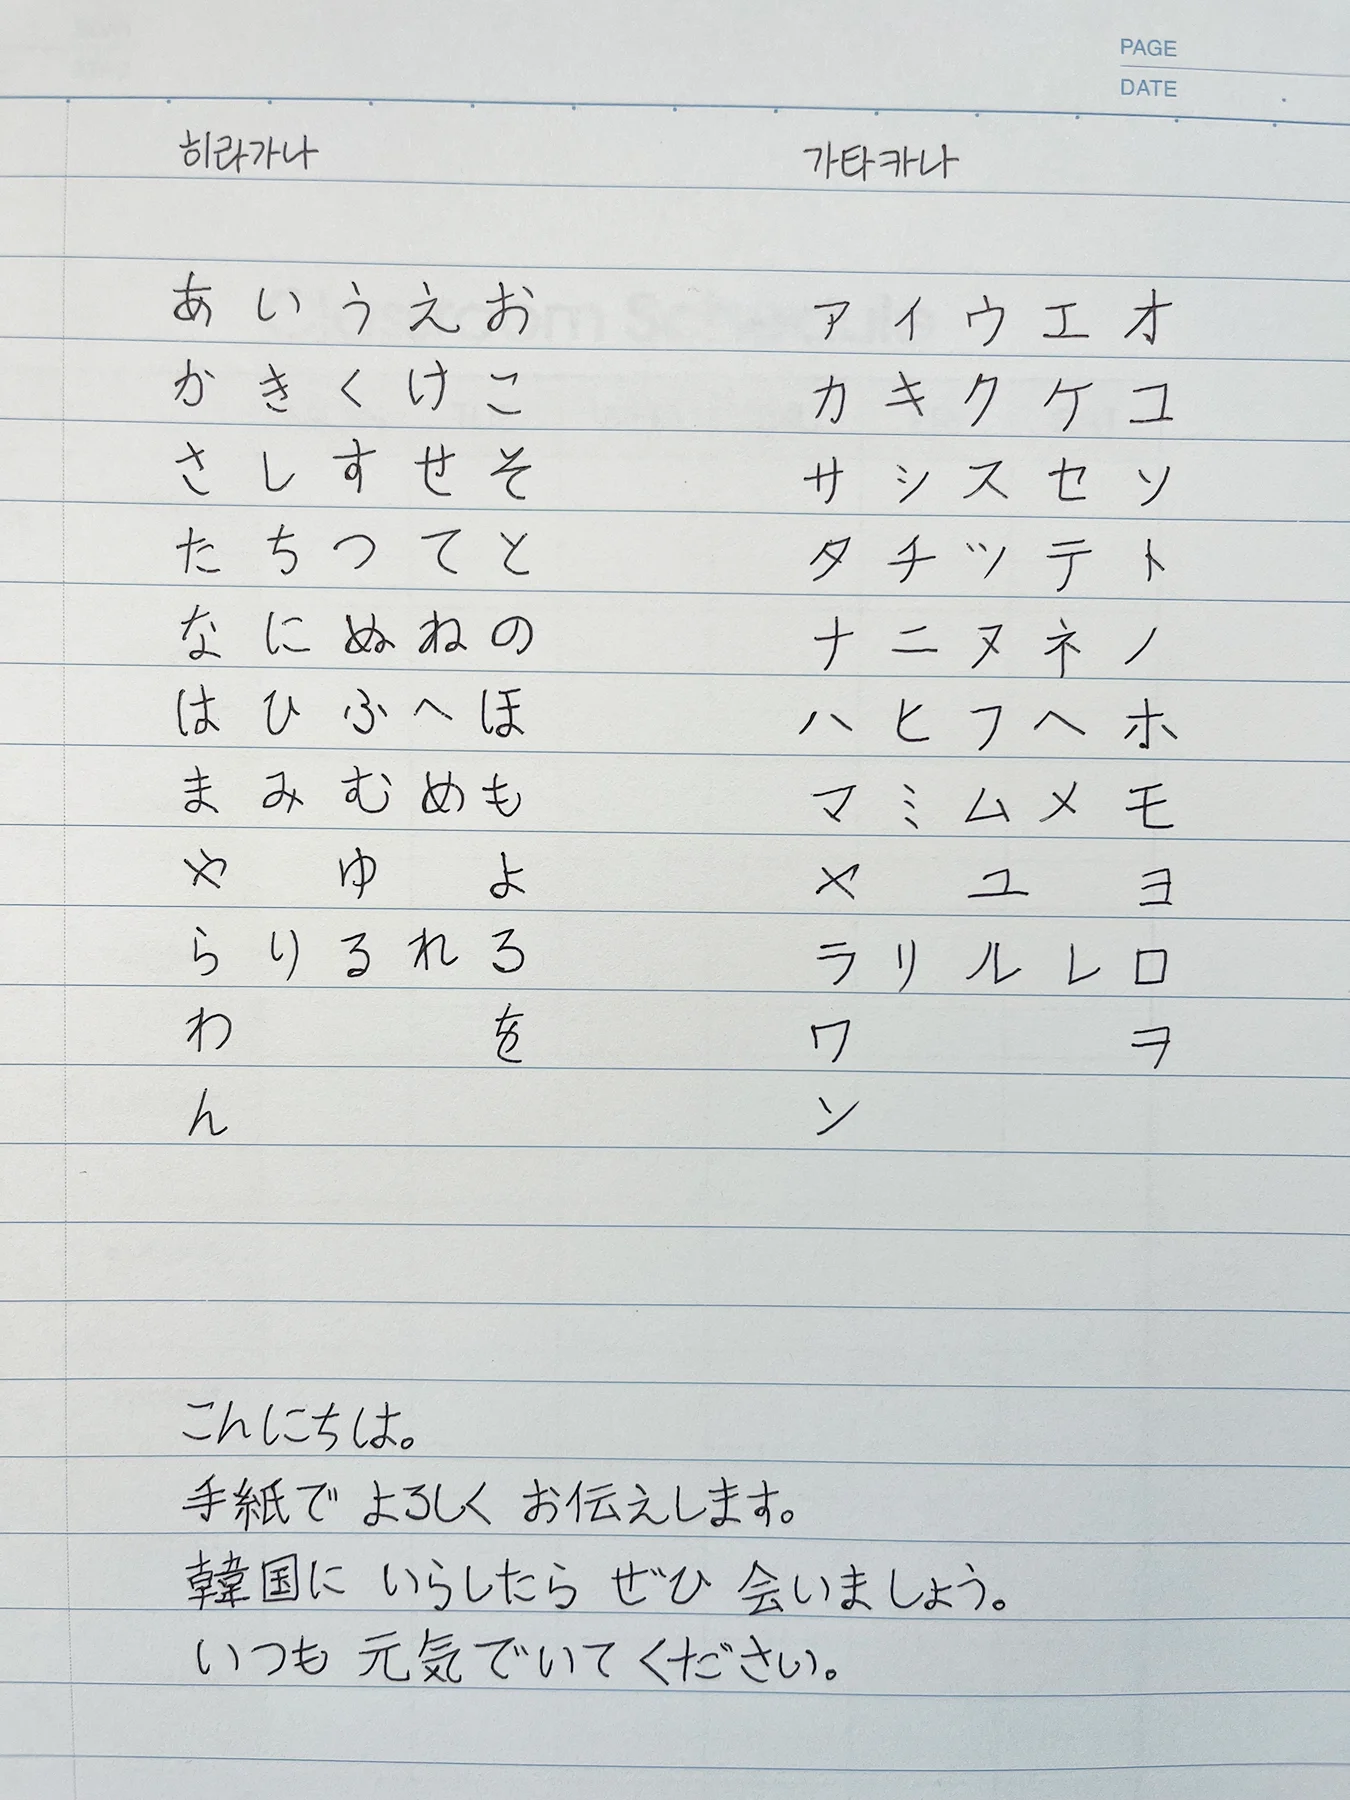 PAGE
DATE
히라가나 가타카나
あ い う え お ア イ ウ エ オ
か き く け こ カ キ ク ケ コ
さ し す せ そ サ シ ス セ ソ
た ち つ て と タ チ ツ テ ト
な に ぬ ね の ナ ニ ヌ ネ ノ
は ひ ふ へ ほ ハ ヒ フ ヘ ホ
ま み む め も マ ミ ム メ モ
や ゆ よ ヤ ユ ヨ
ら り る れ ろ ラ リ ル レ ロ
わ を ワ ヲ
ん ン
こんにちは。
手紙で よろしく お伝えします。
韓国に いらしたら ぜひ 会いましょう。
いつも 元気でいてください。